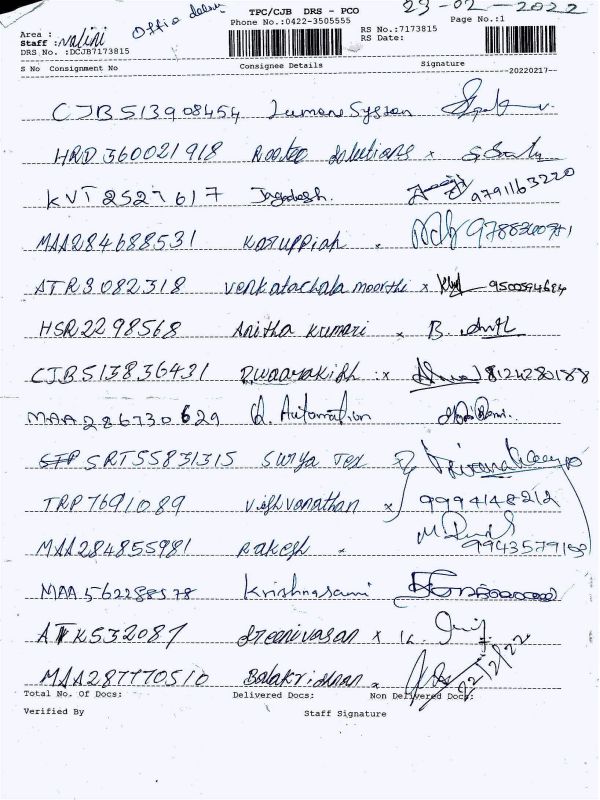 TPC/CJB DRS - PCO 23-02-2022
Phone No.:0422-3505555 Page No.:1
Area :
Staff : Nalini
RS No.:7173815
RS Date:
DRS No. :DCJB7173815
S No Consignment No Consignee Details Signature
20220217
CJB513908454 Lumone System
HRD360021918 Rooteo Solutions x
KVT2527617 Jagadesh. 9791163220
MAA284688531 Karuppiah
ATR3082318 Venkatachala moorthi x 9500594684
HSR2298568 Anitha Kumari x B.
CJB513836431 Dwaarakish :x 8124280188
MAA286730629 Automation
SRT55831315 Surya Tex
TRP7691089 Vishvanathan x 9994148212
MAA284855981 Rakesh
MAA562288578 Krishnasami
ATK532087 Sreenivasan x
MAA287770510 Balakrishnan x 22/2/22
Total No. Of Docs: Delivered Docs: Non Delivered Docs:
Verified By Staff Signature